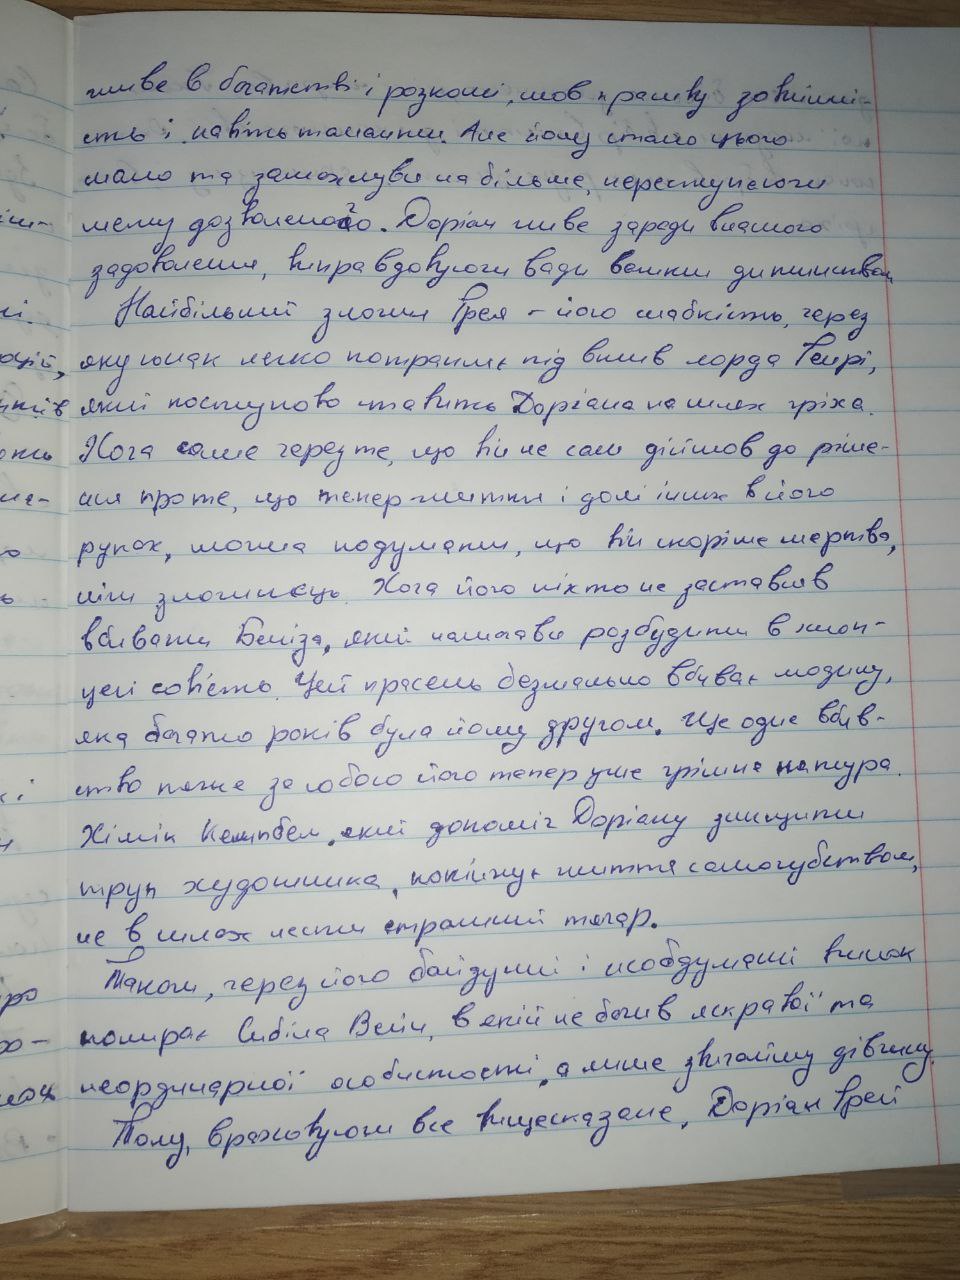 живе в багатстві і розкоші, мов прамву зовнішні-
сть і навіть таланти. Але йому стало цього
мало та забажував на більше, переступаючи
межу дозволеного. Доріан живе заради власного
задоволення, виправдовуючи вади
Найбільший злочин Грея – його слабкість, через
яку юнак легко потрапляє під вплив лорда Генрі,
який поступово ставить Доріана на шлях гріха.
Хоча саме через те, що він не сам дійшов до ріше-
ння про те, що тепер життя і долі інших в його
руках, можна подумати, що він скоріше мертва,
ніж злочинець. Хоча його ніхто не заставляв
вбивати Безіла, який намагавсь розбудити в хлоп-
цеві совість. Цей красень безжально вбиває людину,
яка багато років була йому другом. Ще одне вбив-
ство тягне за собою його тепер уже грішна натура.
Хімік Кемпбел, який допоміг Доріану знищити
труп художника, покінчує життя самогубством,
не в силах нести страшний тягар.
Також, через його байдужий і необдуманий вчинок
помирає Сибіла Вейн, в якій не бачив яскравої та
неординарної особистості, а лише звичайну дівчину.
Тому, враховуючи все вищесказане, Доріан Грей